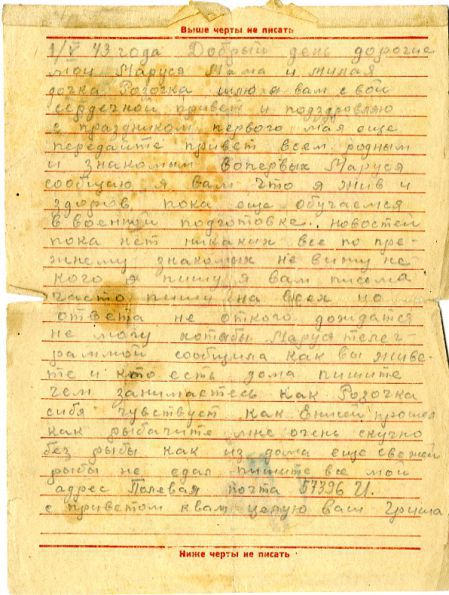 Выше черты не писать
1/V 43 года Добрый день дорогие
мои Маруся Мама и милая
дочка Розочка шлю я вам свой
сердечной привет и подздровляю
с праздником первого мая еще
передайте привет всем родным
и знакомым вопервых Маруся
сообщаю я вам что я жив и
здоров пока еще обучаемся
в военной подготовке. новостей
пока нет никаких все по пре-
жнему знакомых не вижу не
кого я пишу я вам писма
часто пишу на всех но
ответа не откого дождатся
не могу хотябы Маруся телег
раммой сообщила как вы живе-
те и кто есть дома пишите
чем занимаетесь как Розочка
сибя чувствует как Енисей прошел
как рыбачите мне очень скучно
без рыбы как из дома еще свежей
рыбы не едал пишите все мой
адрес Полевая почта 57396 И.
с приветом к вам целую ваш Гриша
Ниже черты не писать